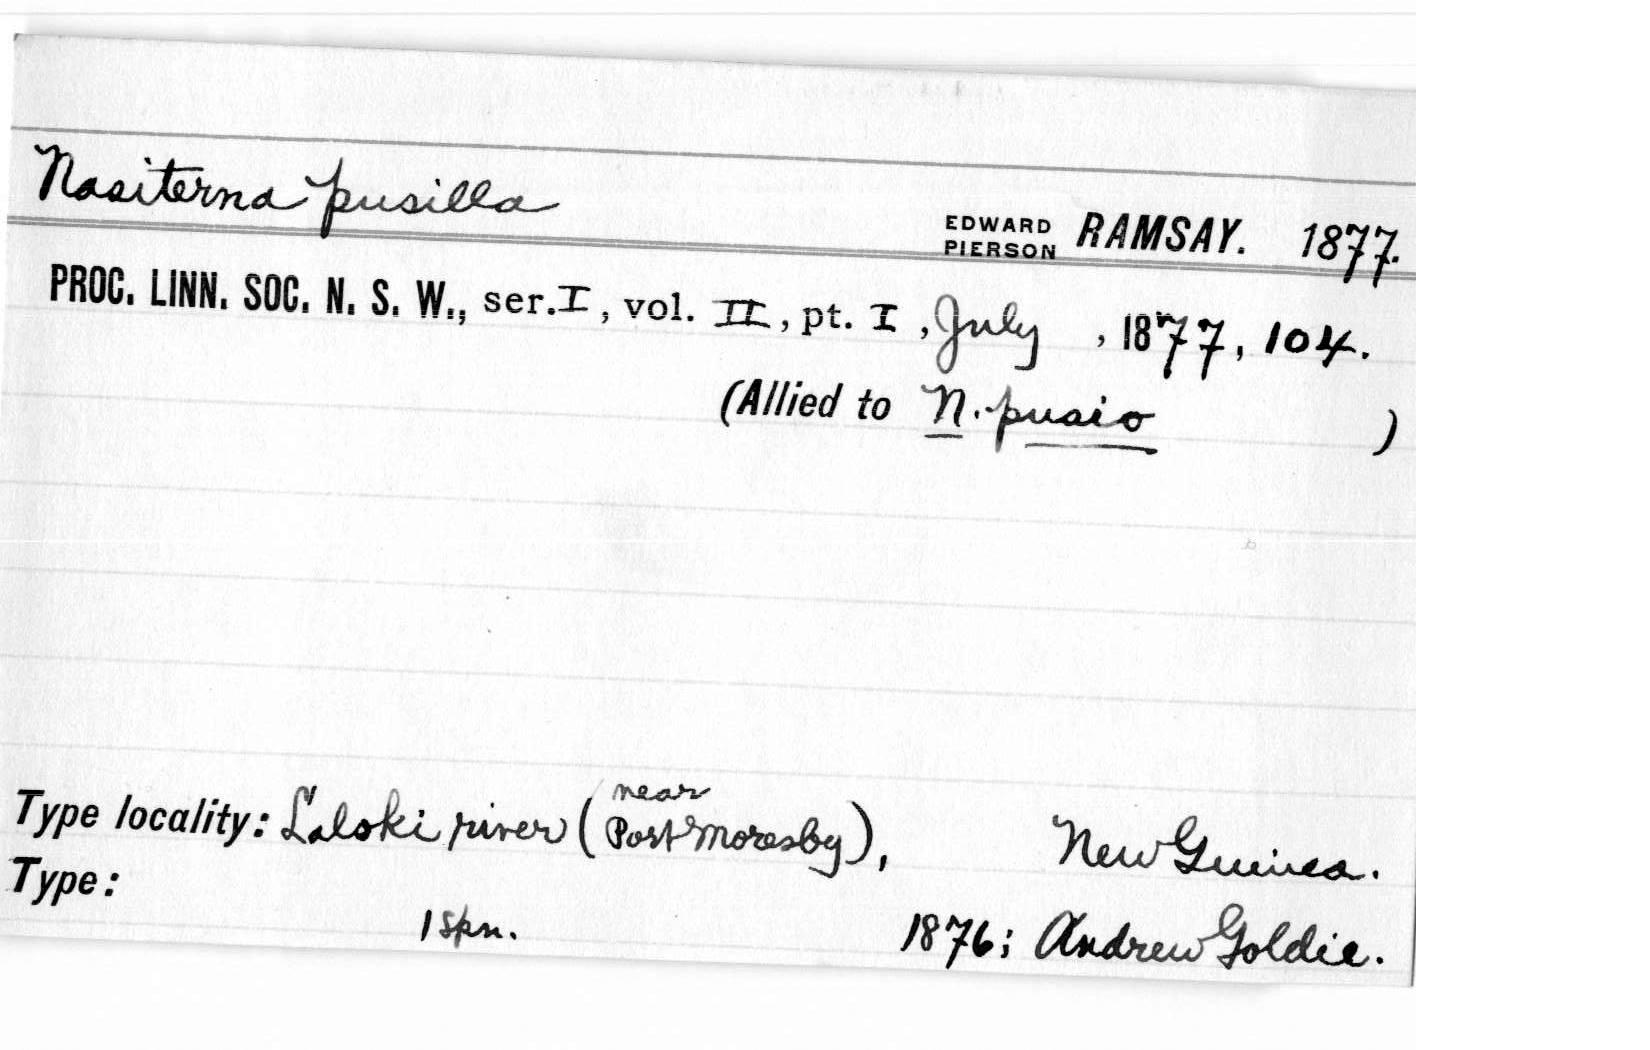 Nasiterna pusilla
EDWARD PIERSON RAMSAY. 1877.
PROC. LINN. SOC. N. S. W., ser. I, vol. II, pt. I, July, 1877, 104.
(Allied to N. pusio)
Type locality: Laloki river (near Port Moresby), New Guinea.
Type:
1 spn. 1876; Andrew Goldie.